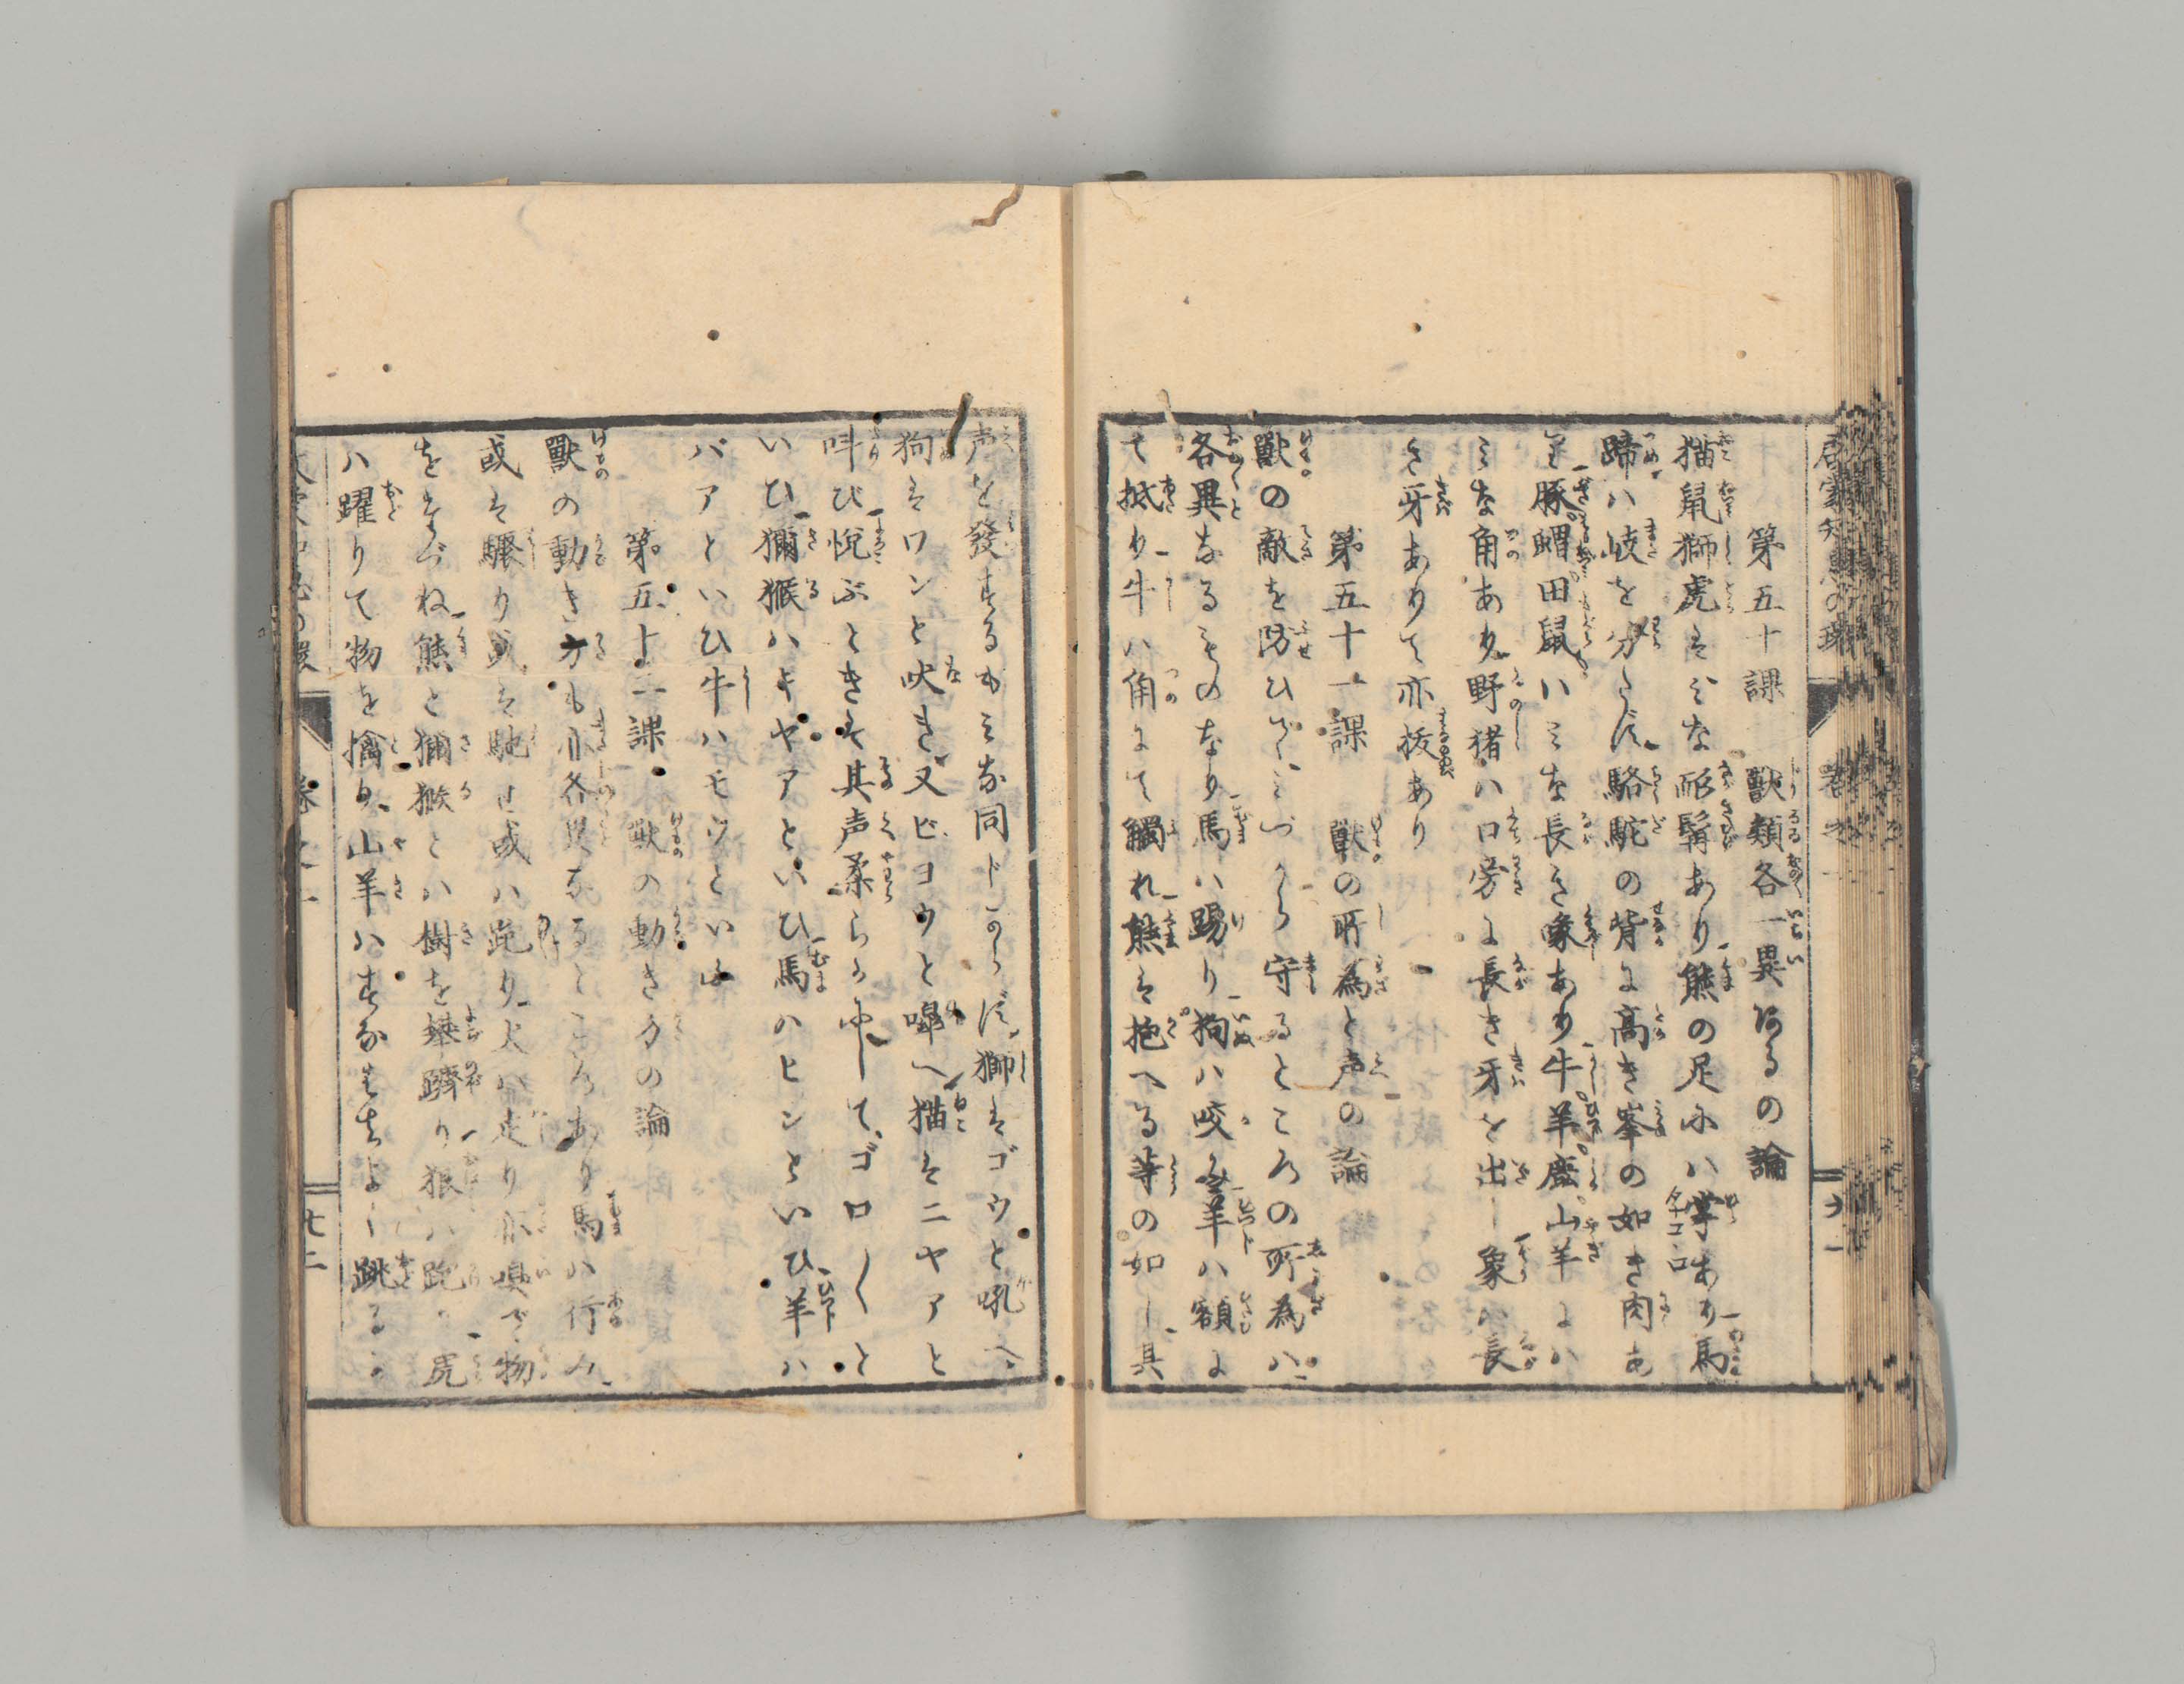 第五十課 獸類各一異なるの論
猫鼠獅虎ハミな頾髯あり熊の足にハ掌あり馬
蹄ハ岐を分たず駱駝の背に高き峯の如き肉あ
り豚蝟田鼠ハミな長き喙あり牛羊鹿山羊にハ
ミな角あり野猪ハ口旁に長き牙を出し象ハ長
き牙ありて亦抜あり
第五十一課 獸の所為と声の論
獸の敵を防ひでミづから守るところの所為ハ
各異なるものなり馬ハ踢り狗ハ咬み羊ハ額に
て抵り牛ハ角にて觸れ熊ハ抱へる等の如し其
声を發するもミな同じからず獅ハゴウと吼へ
狗ハワンと吠き又ビヨウと嘷へ猫ハニヤアと
叫び悦ぶときハ其声柔らかにしてゴロ〱と
いひ獼猴ハキヤアといひ馬ハヒンといひ羊ハ
バアといひ牛ハモウといふ
第五十二課 獸の動き方の論
獸の動き方も亦各異なるところあり馬ハ行み
或ハ驟り或ハ馳せ或ハ跑り犬ハ走り亦嗅で物
をたづね熊と獼猴とハ樹を攀躋り狼ハ跑り虎
ハ躍りて物を擒り山羊ハすなはちよく跳るか
卷之一
七二